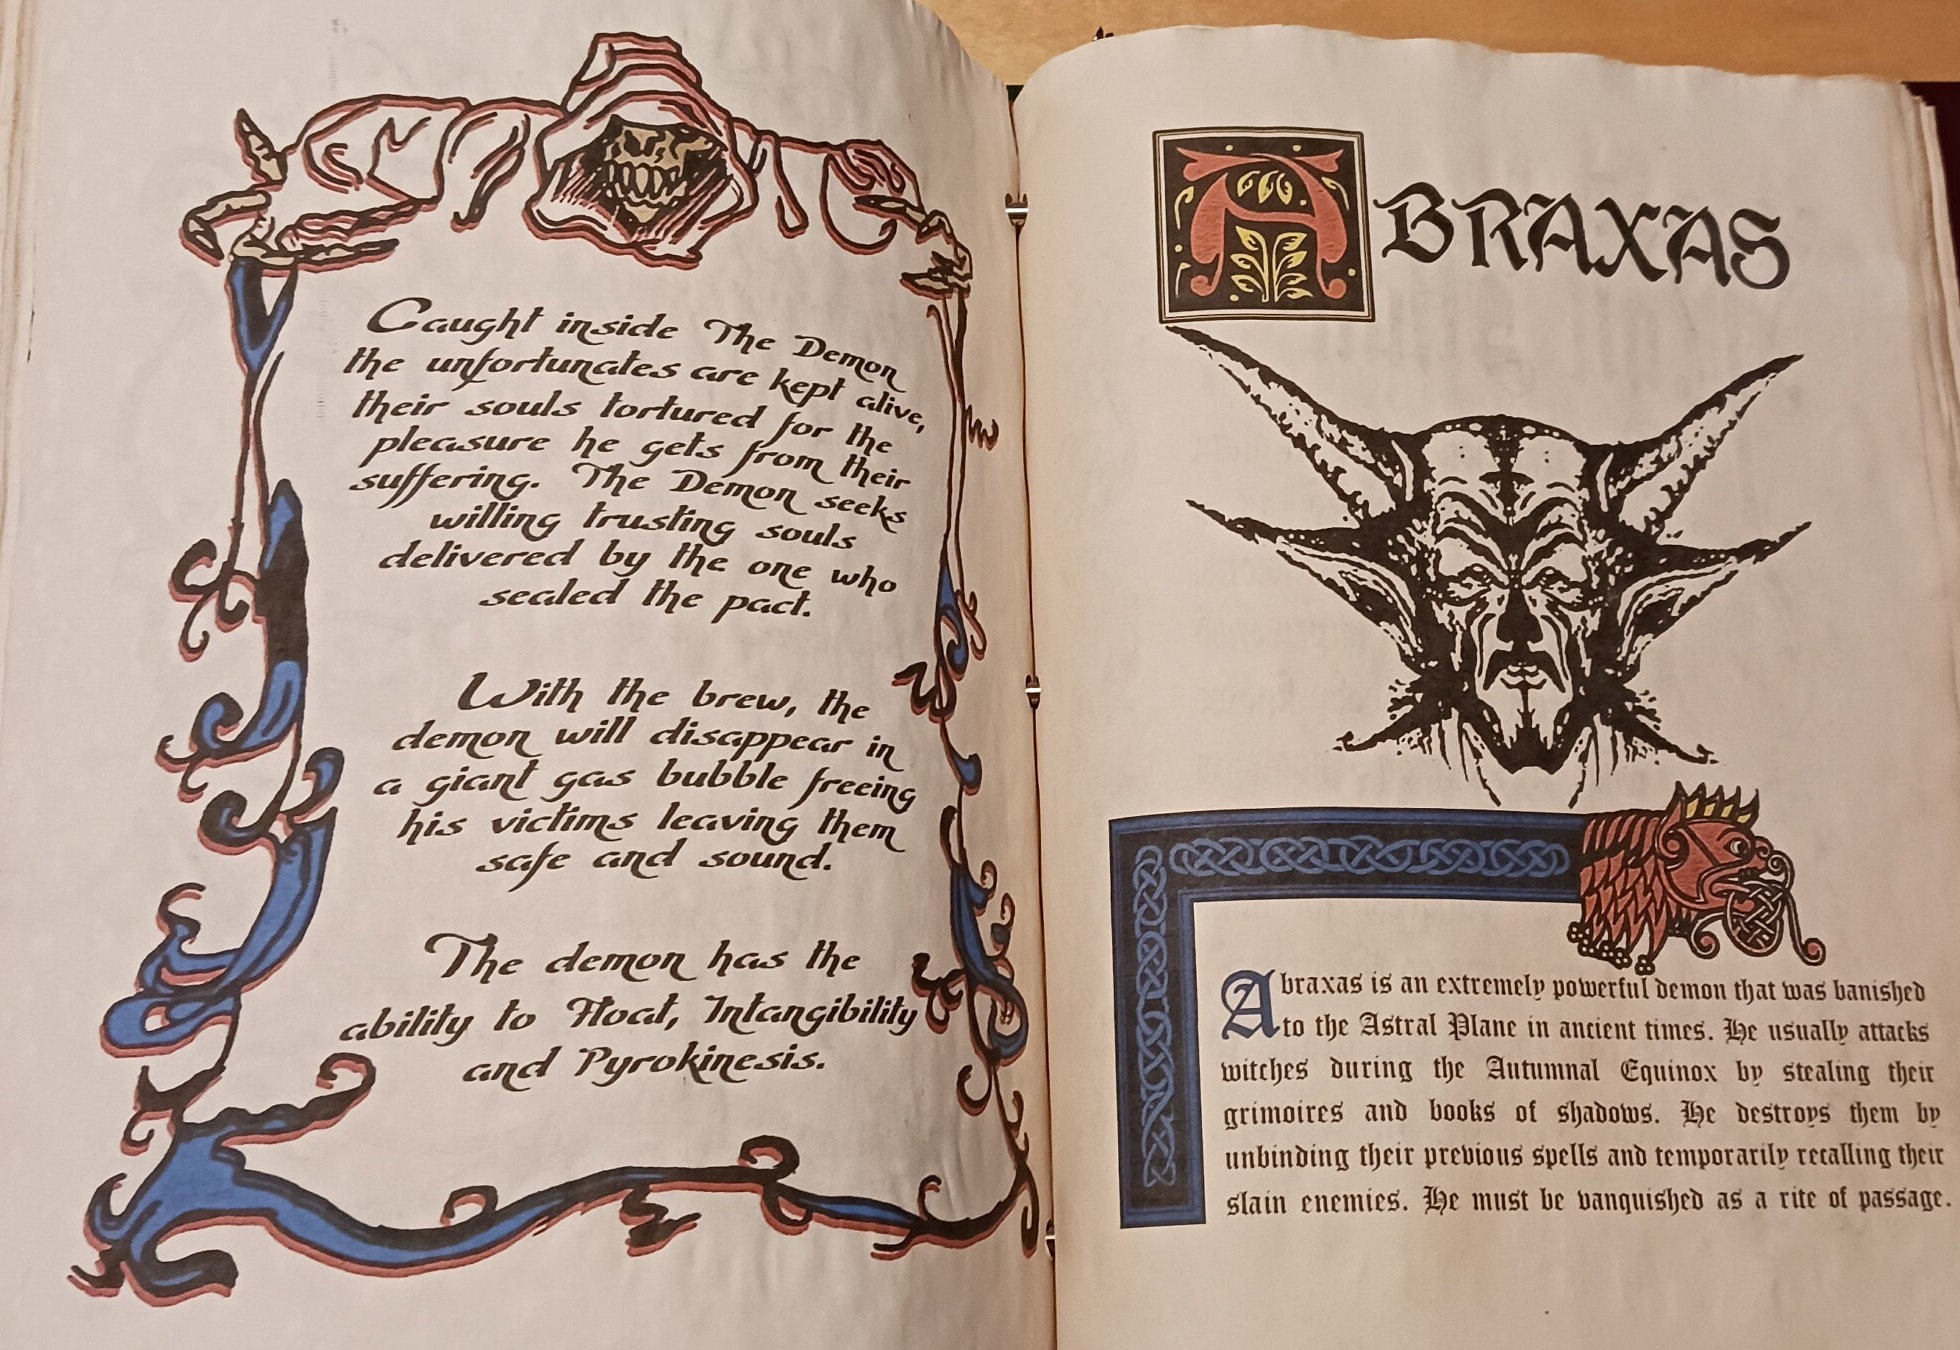 Caught inside The Demon
the unfortunates are kept alive,
their souls tortured for the
pleasure he gets from their
suffering. The Demon seeks
willing trusting souls
delivered by the one who
sealed the pact.
With the brew, the
demon will disappear in
a giant gas bubble freeing
his victims leaving them
safe and sound.
The demon has the
ability to Float, Intangibility
and Pyrokinesis.
ABRAXAS
Abraxas is an extremely powerful demon that was banished
to the Astral Plane in ancient times. He usually attacks
witches during the Autumnal Equinox by stealing their
grimoires and books of shadows. He destroys them by
unbinding their previous spells and temporarily recalling their
slain enemies. He must be vanquished as a rite of passage.